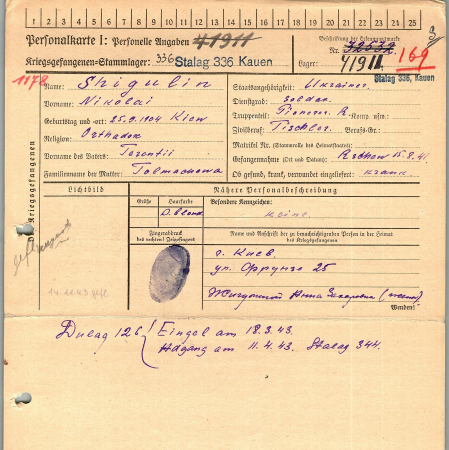 1 2 3 4 5 6 7 8 9 10 11 12 13 14 15 16 17 18 19 20 21 22 23 24 25
Personalkarte I: Personelle Angaben 41911
Beschriftung der Erkennungsmarke
Nr. 72532
Kriegsgefangenen-Stammlager: 336 Stalag 336, Kauen
Lager: 41911 169
Stalag 336, Kauen
1178
Name: Shigulin
Staatsangehörigkeit: Ukrainer
Vorname: Nikolai
Dienstgrad: Soldat
Geburtstag und -ort: 25.9.1904 Kiew
Truppenteil: Pionier. R. Komp. usw.:
Religion: Orthodox
Zivilberuf: Tischler Berufs-Gr.:
Vorname des Vaters: Terentii
Matrikel Nr. (Stammrolle des Heimatstaates):
Gefangennahme (Ort und Datum): Rschew 15.8.41.
Familienname der Mutter: Tolmachowa
Ob gesund, krank, verwundet eingeliefert: krank.
Des Kriegsgefangenen
Lichtbild
Nähere Personalbeschreibung
Größe
Haarfarbe
Besondere Kennzeichen:
D. blond
Keine.
Fingerabdruck
des rechten! Zeigefinger
Name und Anschrift der zu benachrichtigenden Person in der Heimat
des Kriegsgefangenen
г. Киев.
ул. Фрунзе 25
Анна Захаровна (жена).
Wenden!
14.11.43
Dulag 126 Eingel am 18.3.43.
Abgang am 11.4.43. Stalag 344.